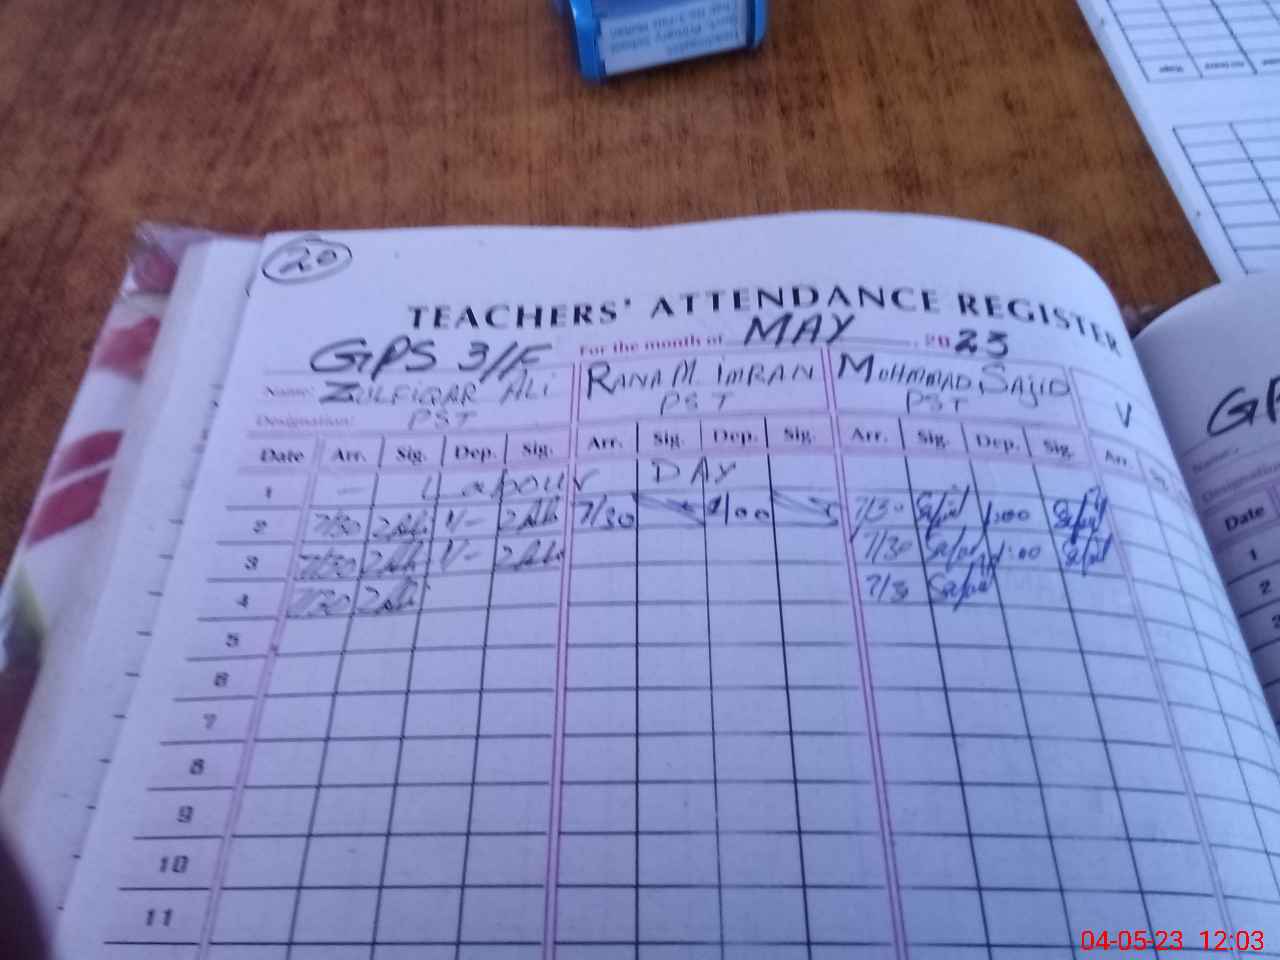 20
TEACHERS' ATTENDANCE REGISTER
GPS 3/F For the month of MAY, 2023
Name: ZULFIQAR ALi RANA M IMRAN MOHMMAD SAJID
Designation: PST PST PST V
Date Arr. Sig. Dep. Sig. Arr. Sig. Dep. Sig. Arr. Sig. Dep. Sig. Arr.
1 - Labour DAY
2 7/30 Zul 1/- Zul 7/30 1/00 7/30 Sajid 1:00 Sajid
3 7/30 Zul 1/- Zul 7/30 Sajid 1:00 Sajid
4 7/30 Zul 7/30 Sajid
5
6
7
8
9
10
11
Name:
Designation
Date
1
2
3
04-05-23 12:03